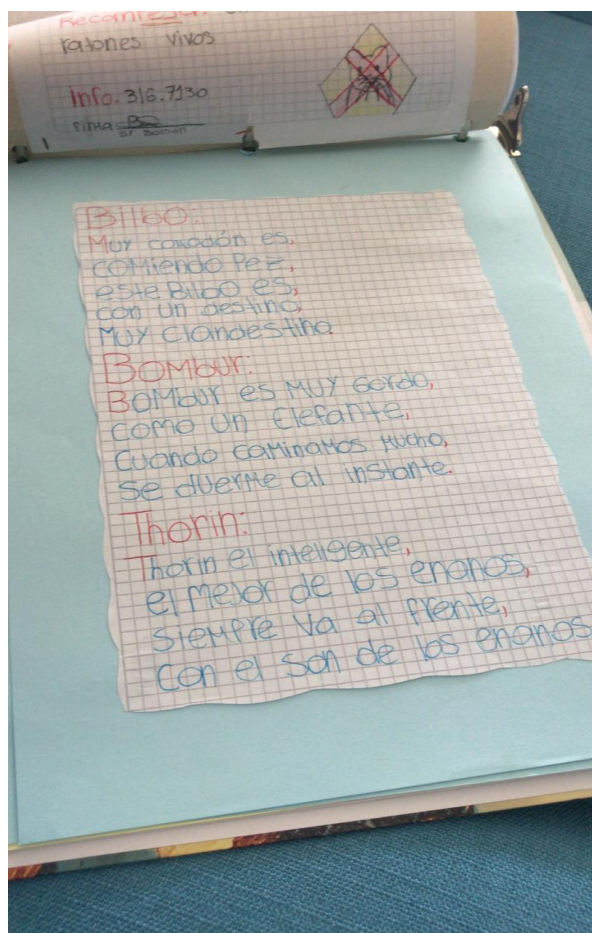 Recompensa:
ratones vivos
Info. 316.7130
Firma
Bilbo:
Muy comodón es,
comiendo Pez,
este Bilbo es,
con un destino,
Muy clandestino.
Bombur:
Bombur es Muy Gordo,
como un Elefante,
Cuando caminamos Mucho,
se duerme al instante.
Thorin:
Thorin el inteligente,
el mejor de los enanos,
siempre va al frente,
Con el son de los enanos